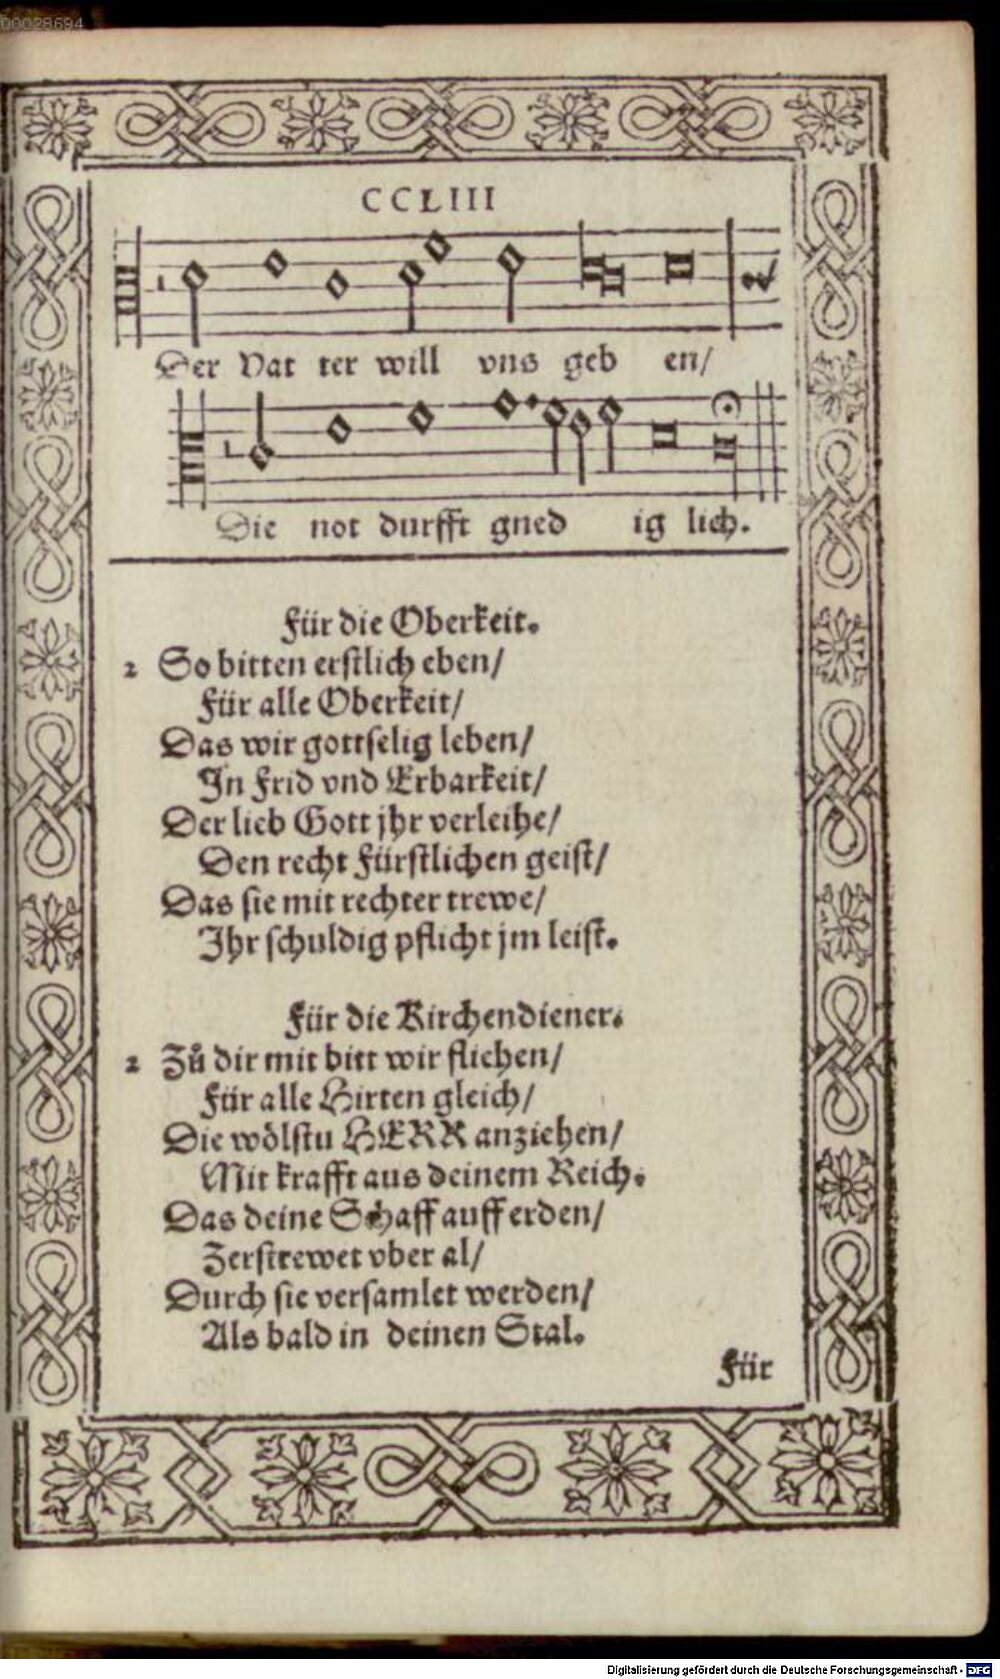 00028694
CCLIII
Der Vat ter will vns geb en/
Die not durfft gned ig lich.
Für die Oberkeit.
2 So bitten erstlich eben/
Für alle Oberkeit/
Das wir gottselig leben/
In Frid vnd Erbarkeit/
Der lieb Gott jhr verleihe/
Den recht Fürstlichen geist/
Das sie mit rechter trewe/
Ihr schuldig pflicht jm leist.
Für die Kirchendiener.
2 Zů dir mit bitt wir fliehen/
Für alle Hirten gleich/
Die wölstu HERR anziehen/
Mit krafft aus deinem Reich.
Das deine Schaff auff erden/
Zerstrewet vber al/
Durch sie versamlet werden/
Als bald in deinen Stal.
Für
Digitalisierung gefördert durch die Deutsche Forschungsgemeinschaft - DFG